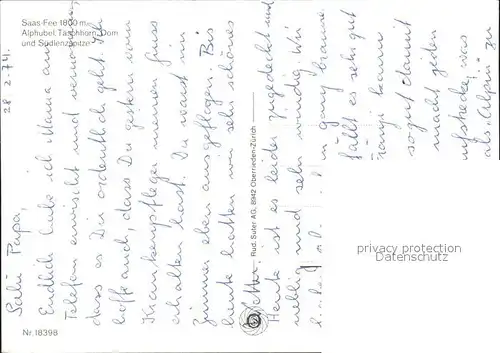 Saas-Fee 1800 m
Alphubel, Täschhorn, Dom
und Südlenzspitze
28. 2. 74.
Salü Papa,
Endlich habe ich Mama am
Telefon erwischt und vernommen
dass es Dir ordentlich geht. Ich
hoffe auch, dass Du gestern vom
Krankenpfleger meinen Gruss
erhalten hast. Du warst im
Zimmer eben ausgeflogen. Bis
heute hatten wir sehr schönes
Wetter.
Heute ist es leider zugedeckt und
neblig und sehr windig. Wir
ganz braune
fällt es sehr gut
kann
sogut damit
macht jeden
was
als Alpin zu
Rud. Suter AG, 8942 Oberrieden-Zürich
Nr. 18398
privacy protection
Datenschutz